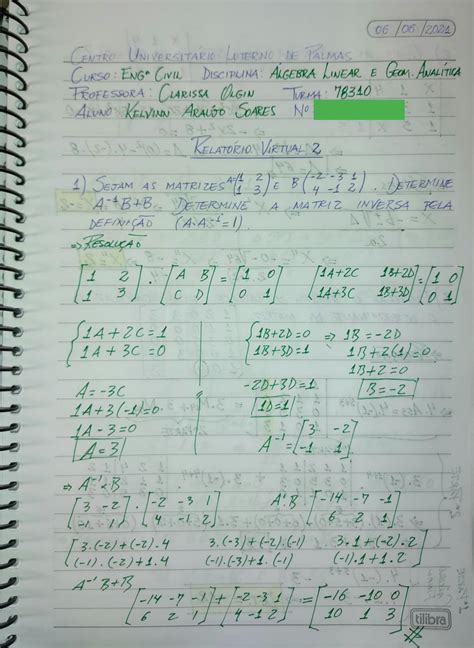 06/06/2021
CENTRO UNIVERSITÁRIO LUTERNO DE PALMAS
CURSO: ENGª CIVIL DISCIPLINA: ÁLGEBRA LINEAR E GEOM. ANALÍTICA
PROFESSORA: CLARISSA OLGIN TURMA: 78310
ALUNO KELVINN ARAÚJO SOARES Nº
RELATÓRIO VIRTUAL 2
1) SEJAM AS MATRIZES A(1 2 / 1 3) E B(-2 -3 1 / 4 -1 2). DETERMINE
A⁻¹B+B. DETERMINE A MATRIZ INVERSA PELA
DEFINIÇÃO (A·A⁻¹=I).
⇒ RESOLUÇÃO
[1 2 / 1 3] · [A B / C D] = [1 0 / 0 1] [1A+2C 1B+2D / 1A+3C 1B+3D] = [1 0 / 0 1]
{1A+2C=1 {1B+2D=0 ⇒ 1B=-2D
1A+3C=0 1B+3D=1 1B+2(1)=0
1B+2=0
A=-3C -2D+3D=1 B=-2
1A+3(-1)=0 1D=1
1A-3=0 A⁻¹=[3 -2 / -1 1]
A=3
⇒ A⁻¹·B
[3 -2 / -1 1] · [-2 -3 1 / 4 -1 2] A⁻¹B=[-14 -7 -1 / 6 2 1]
[3.(-2)+(-2).4 3.(-3)+(-2).(-1) 3.1+(-2).2
(-1).(-2)+1.4 (-1).(-3)+1.(-1) (-1).1+1.2]
A⁻¹B+B
[-14 -7 -1 / 6 2 1] + [-2 -3 1 / 4 -1 2] = [-16 -10 0 / 10 1 3]
tilibra